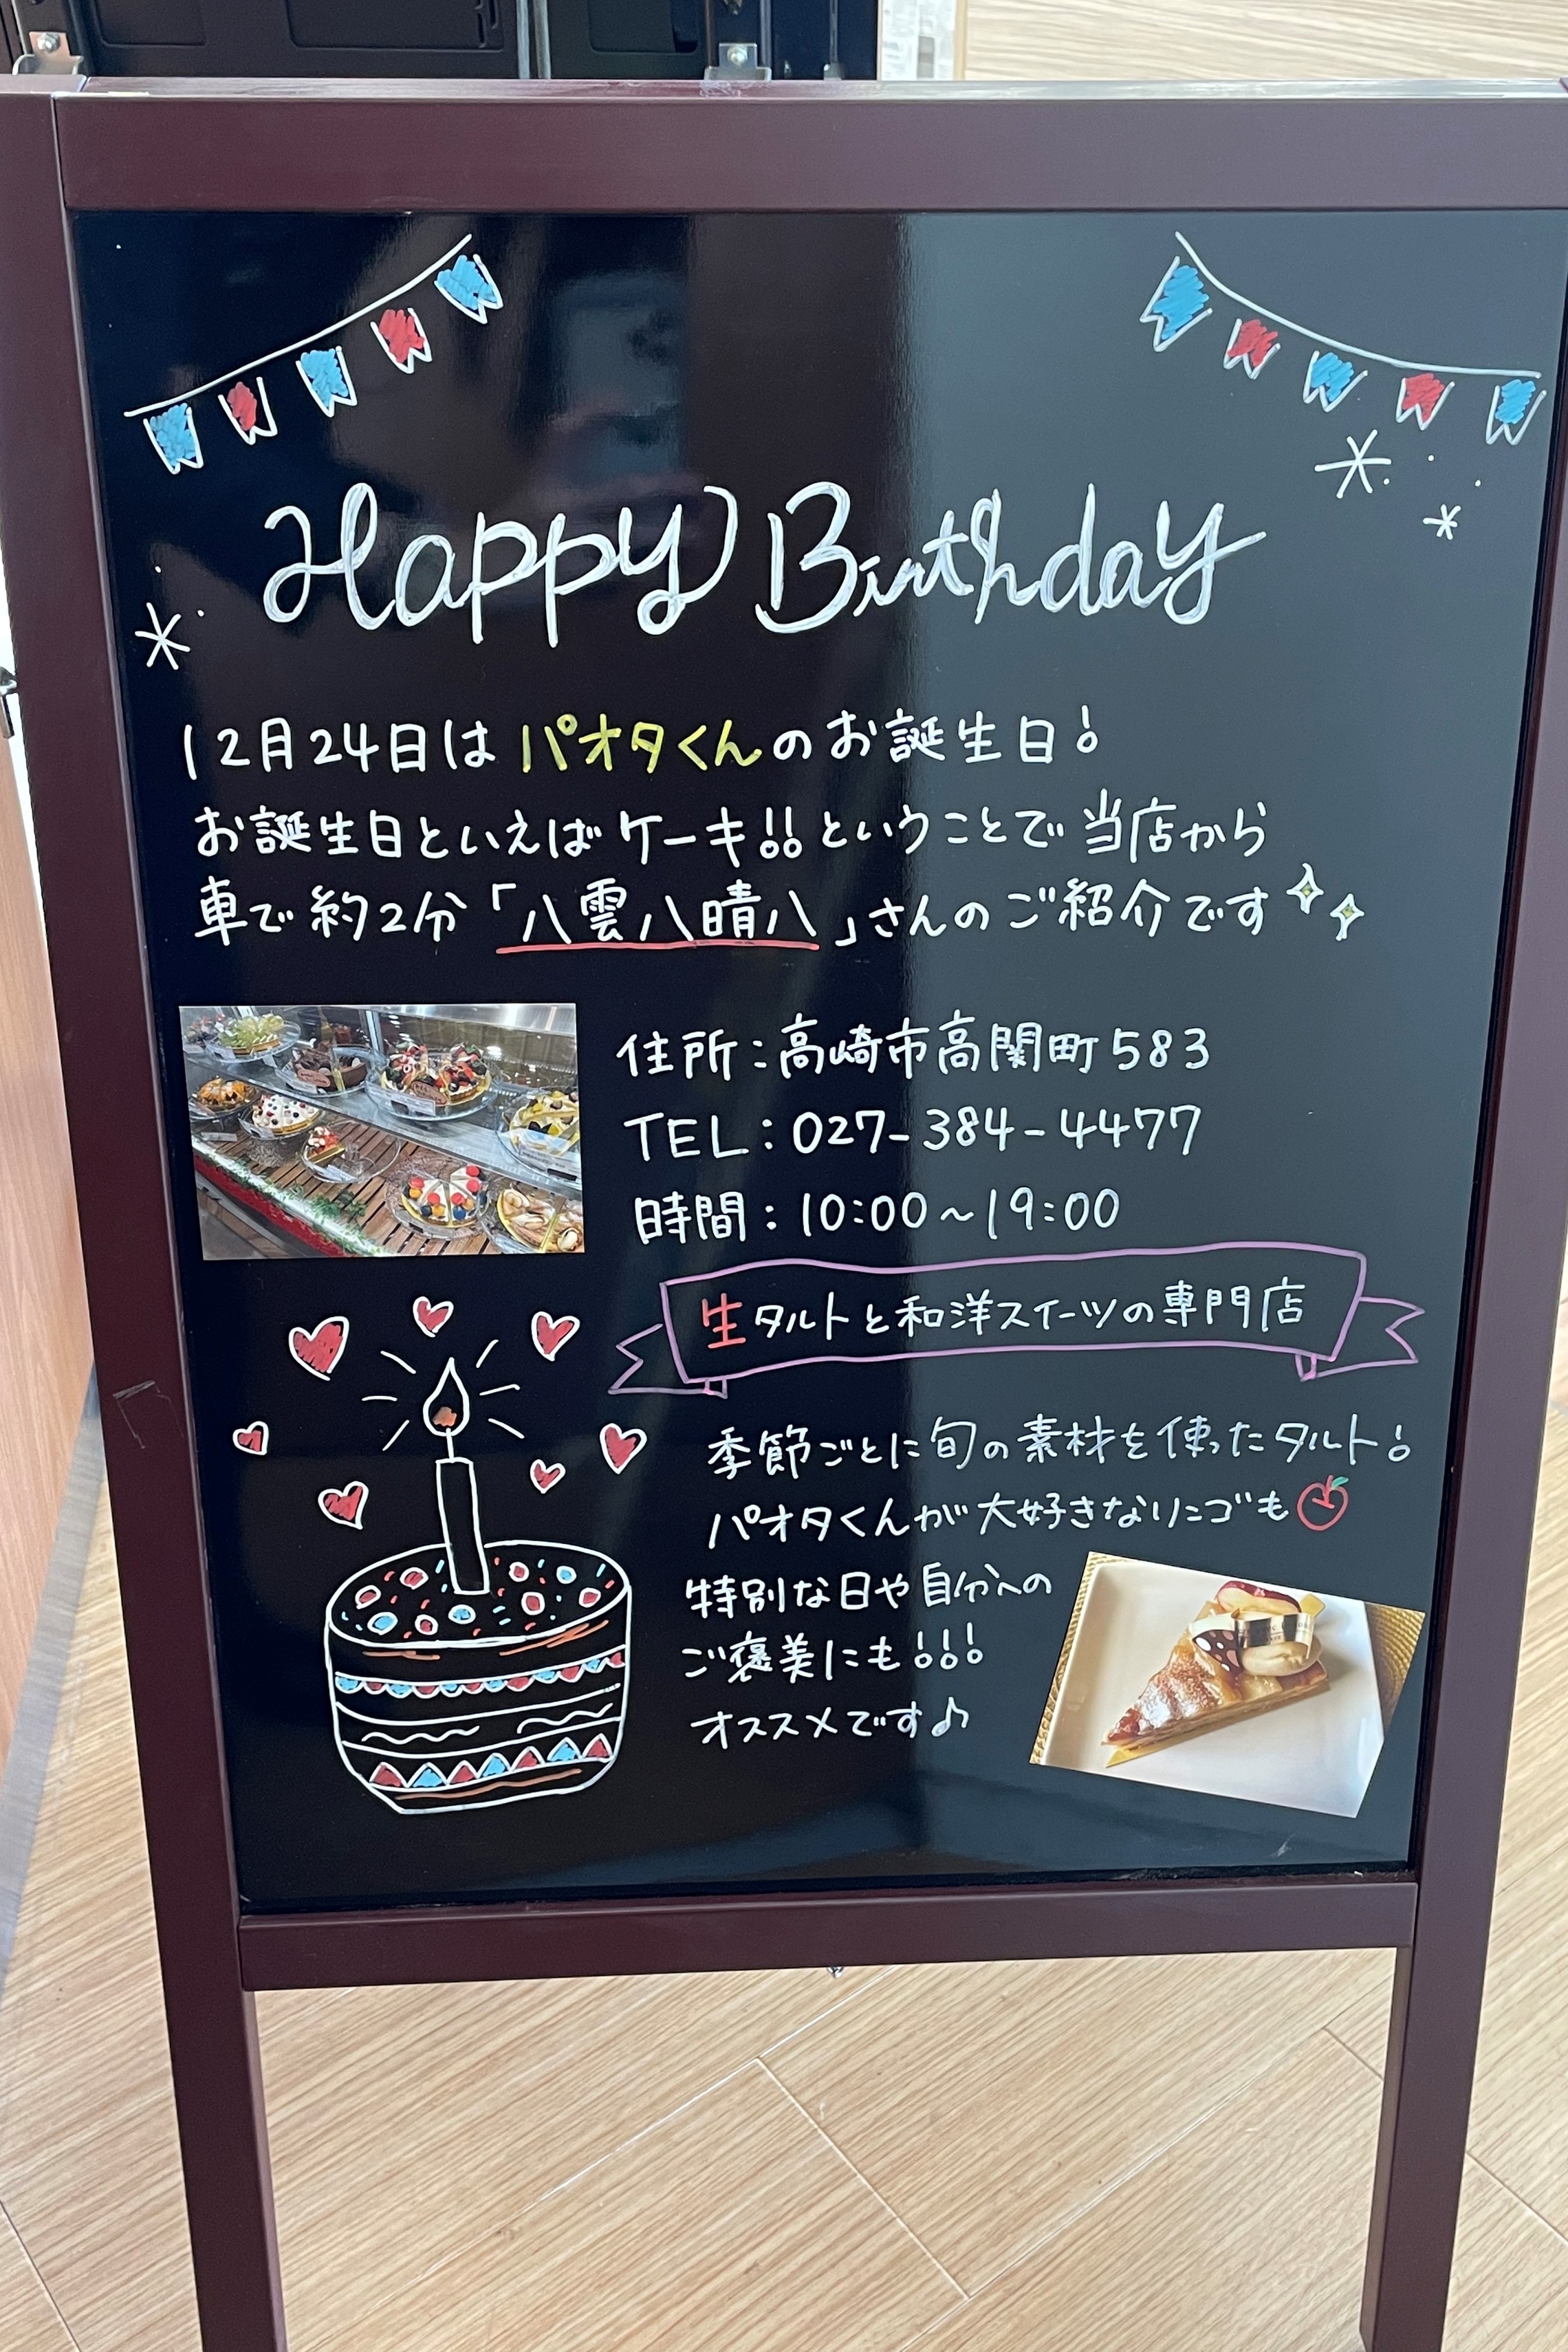 Happy Birthday
12月24日はパオタくんのお誕生日!
お誕生日といえばケーキ!!ということで当店から
車で約2分「八雲八晴八」さんのご紹介です
住所:高崎市高関町583
TEL:027-384-4477
時間:10:00~19:00
生タルトと和洋スイーツの専門店
季節ごとに旬の素材を使ったタルト!
パオタくんが大好きなリンゴも
特別な日や自分への
ご褒美にも!!!
オススメです♪